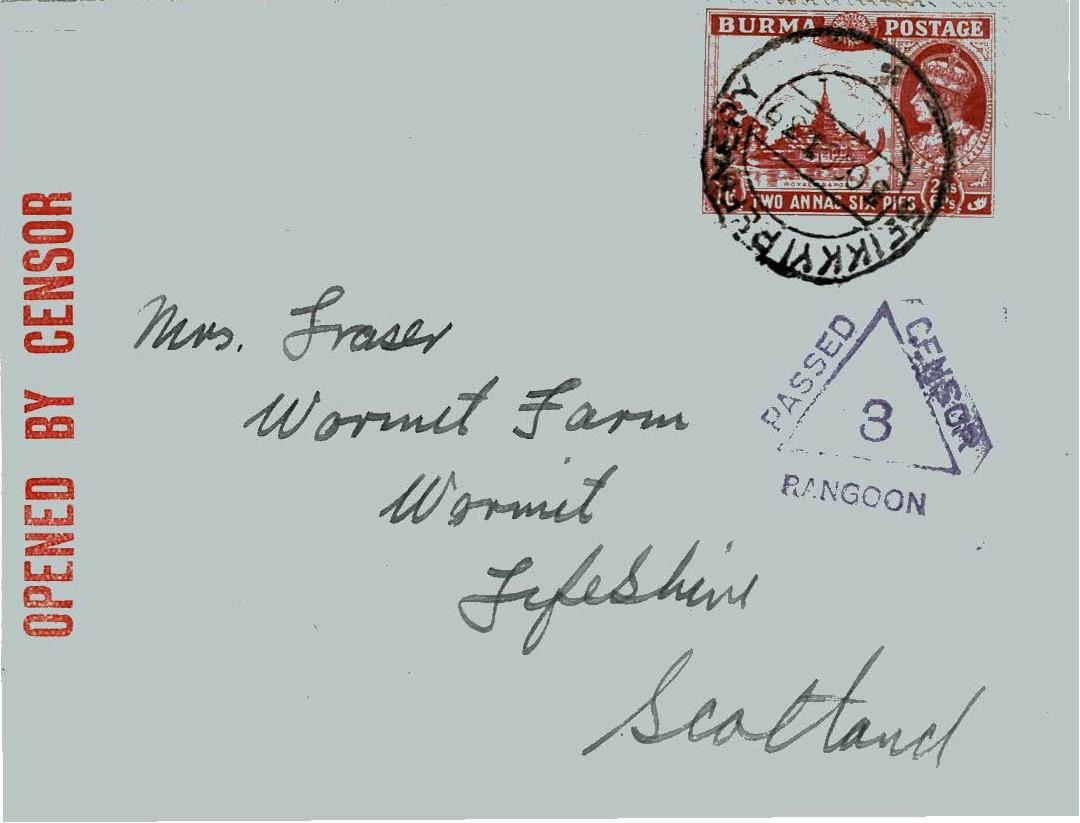 BURMA POSTAGE
ROYAL BARGE
TWO ANNAS SIX PIES
SEIKKYI
OPENED BY CENSOR
PASSED CENSOR
3
RANGOON
Mrs. Fraser
Wormit Farm
Wormit
Fifeshire
Scotland